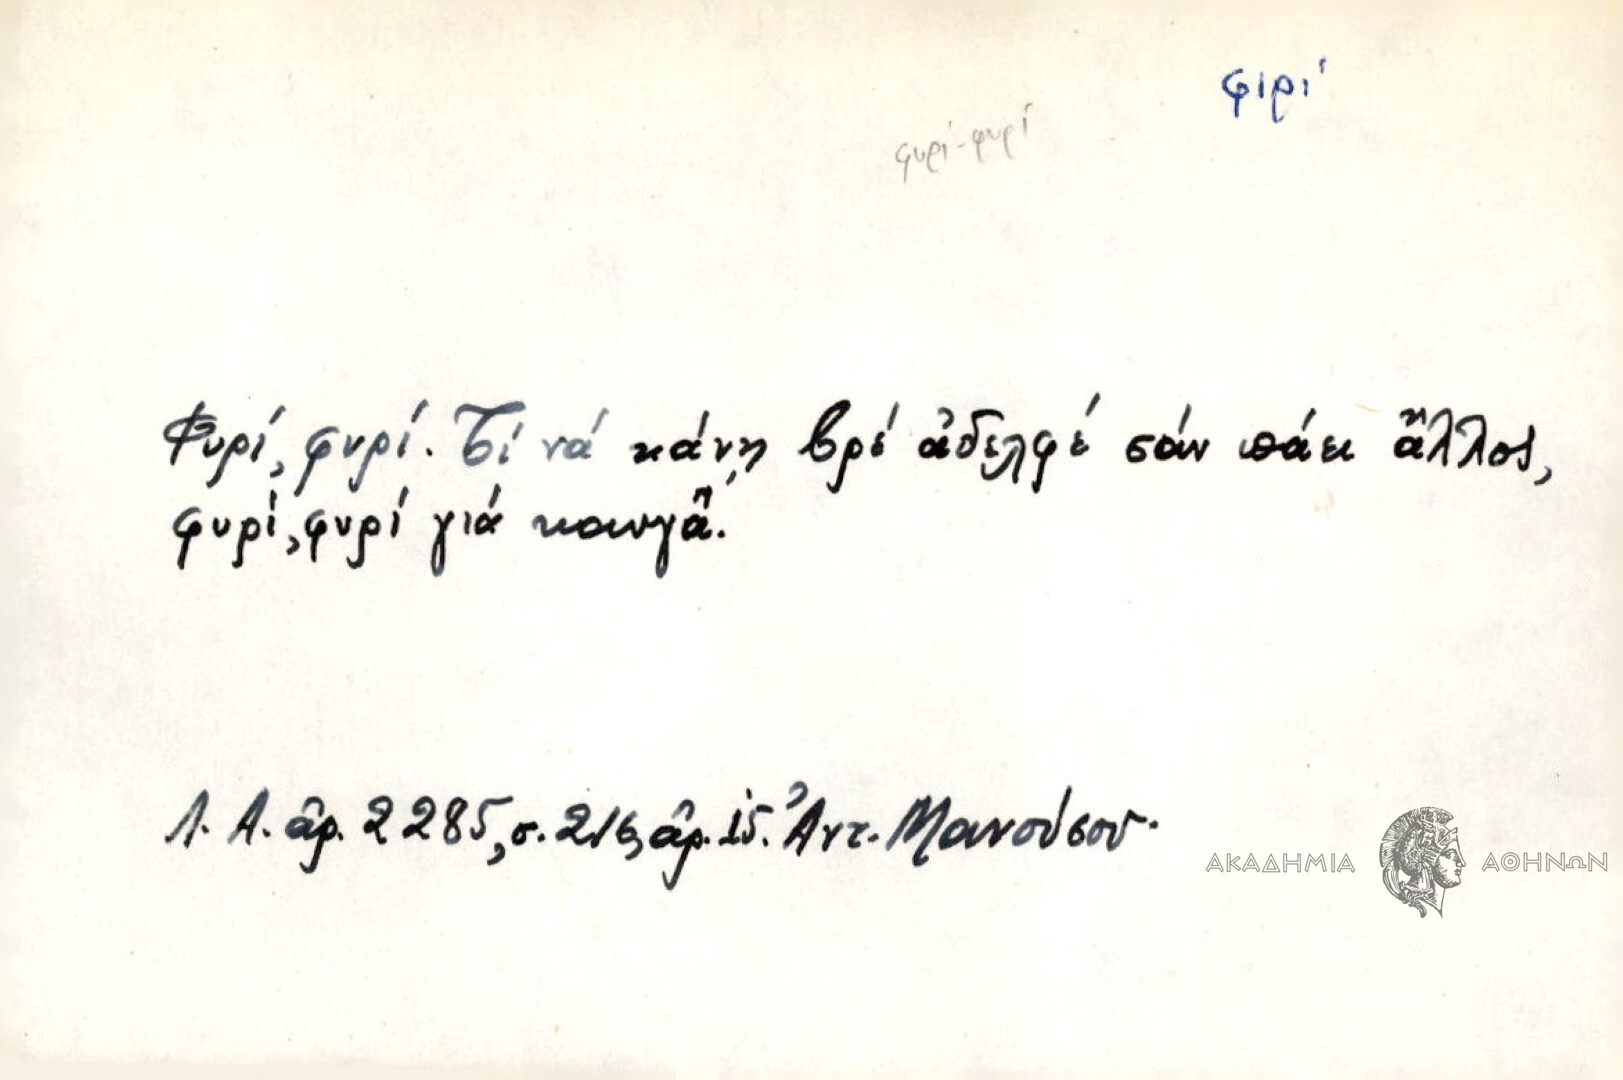 φιρί
φυρί-φυρί
Φυρί, φυρί. Τί νά κάνῃ βρέ ἀδελφέ σάν πάει ἄλλος,
φυρί, φυρί γιά καυγᾶ.
Λ. Α. ἀρ. 2285, σ. 216, ἀρ. 15. Ἀντ. Μανούσου.
ΑΚΑΔΗΜΙΑ ΑΘΗΝΩΝ